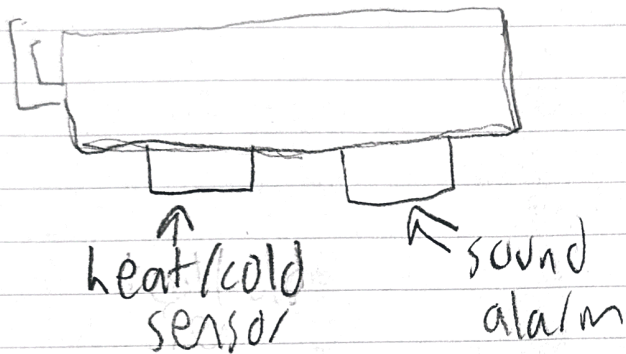 heat/cold
sensor
sound
alarm